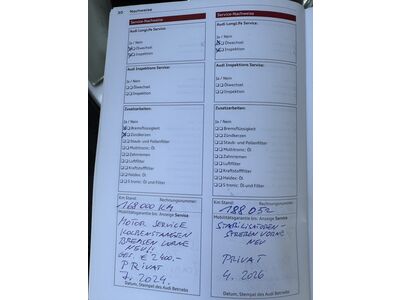 30 Nachweise
Service-Nachweise
Audi LongLife Service:
Ja / Nein
Ölwechsel
Inspektion
Audi Inspektions Service:
Ja / Nein
Ölwechsel
Inspektion
Zusatzarbeiten:
Ja / Nein
Bremsflüssigkeit
Zündkerzen
Staub- und Pollenfilter
Multitronic: Öl
Zahnriemen
Luftfilter
Kraftstofffilter
Haldex: Öl
S tronic: Öl und Filter
Km Stand: Rechnungsnummer:
168 000 KM
Mobilitätsgarantie bis: Anzeige Service
MOTOR SERVICE
KOLBENSTANGEN
BREMSEN VORNE
NEU!!
GES. € 2400.-
PRIVAT
7. 2024.
Datum, Stempel des Audi Betriebs
Service-Nachweise
Audi LongLife Service:
Ja / Nein
Ölwechsel
Inspektion
Audi Inspektions Service:
Ja / Nein
Ölwechsel
Inspektion
Zusatzarbeiten:
Ja / Nein
Bremsflüssigkeit
Zündkerzen
Staub- und Pollenfilter
Multitronic: Öl
Zahnriemen
Luftfilter
Kraftstofffilter
Haldex: Öl
S tronic: Öl und Filter
Km Stand: Rechnungsnummer:
188 052
Mobilitätsgarantie bis: Anzeige Service
STABILISATOREN-
STREBEN VORNE
NEU
PRIVAT
4. 2026
Datum, Stempel des Audi Betriebs